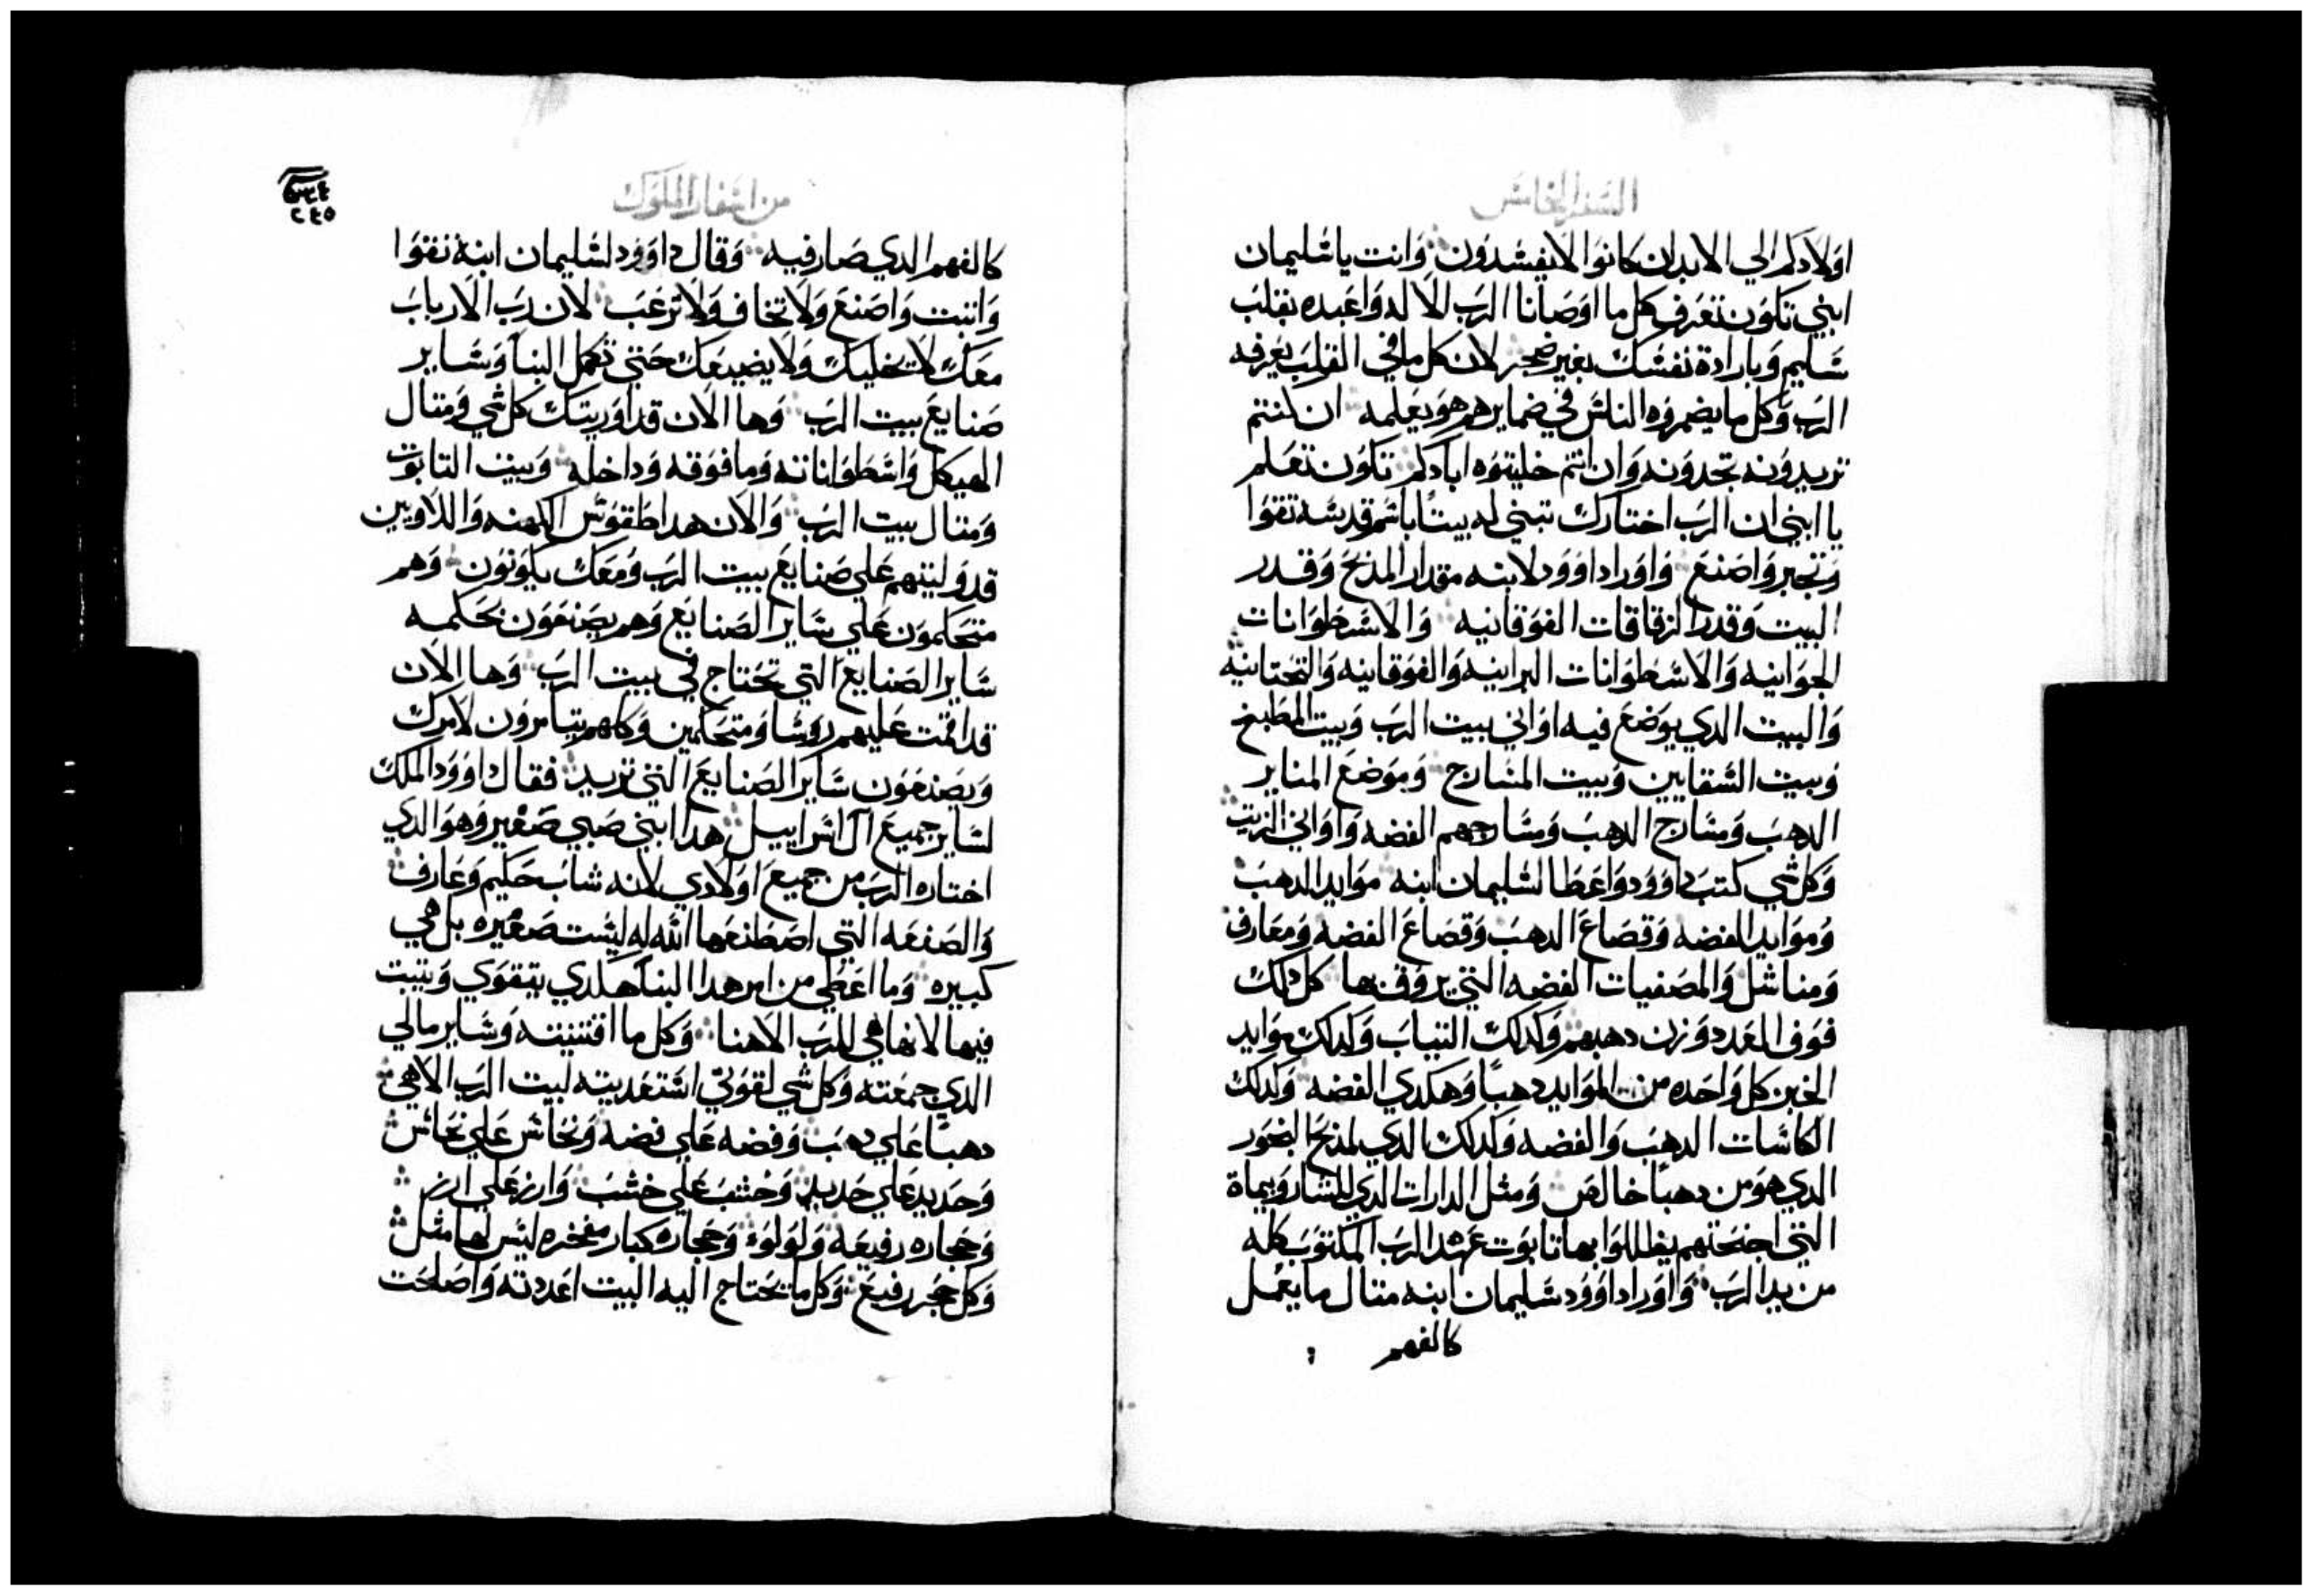 السفر الخامس
اولادكم الي الابد ان كانوا لا يفسدون وانت يا سليمان
ابني تكون تعرف كل ما اوصانا الرب الاله واعبده بقلب
سليم وبارادة نفسك بغير ضجر لان كل ما في القلب يعرفه
الرب وكل ما يضمروه الناس في ضمايرهم هو يعلمه ان كنتم
تريدونه تجدونه وان انتم خليتوه ابادكم تكون تعلم
يا ابني ان الرب اختارك تبني له بيتا باسم قدسه تقوا
وتجبر واصنع واورا داوود لابنه مقدار المذبح وقدر
البيت وقدر الزقاقات الفوقانيه والاسطوانات
الجوانيه والاسطوانات البرانيه والفوقانيه والتحتانيه
والبيت الدي يوضع فيه اواني بيت الرب وبيت المطبخ
وبيت السقايين وبيت المسارج وموضع المناير
الدهب ومسارج الدهب ومسارجهم الفضه واواني الزيت
وكل شي كتب داوود واعطا لسليمان ابنه موايد الدهب
وموايد الفضه وقصاع الدهب وقصاع الفضه ومغارف
ومناشل والمصفيات الفضه التي يروق بها كل دلك
فوق العدد وزن دهبهم وكدلك التياب وكدلك موايد
الخبز كل واحده من الموايد دهبا وهكدي الفضه وكدلك
الكاسات الدهب والفضه وكدلك الدي لمذبح البخور
الدي هو من دهبا خالص ومثل الدارات الدي للشاروبيماة
التي اجنحتهم يظللوا بها تابوت عهد الرب المكتوب كله
من يد الرب واورا داوود سليمان ابنه متال ما يعمل
كالفهم
من اسفار الملوك
٢٤٥
كالفهم الدي صار فيه وقال داوود لسليمان ابنه تقوا
واتبت واصنع ولا تخاف ولا ترعب لان رب الارباب
معك لا يخليك ولا يضيعك حتي تكمل البنا وساير
صنايع بيت الرب وها الان قد اوريتك كل شي ومتال
الهيكل واسطواناته وما فوقه وداخله وبيت التابوت
ومتال بيت الرب والان هدا طقوس الكهنه واللاويين
قد وليتهم علي صنايع بيت الرب ومعك يكونون وهم
متحكمون علي ساير الصنايع وهم يصنعون بحكمه
ساير الصنايع التي تحتاج في بيت الرب وها الان
قد اقمت عليهم روسا ومتحكمين وكلهم يتامرون لامرك
ويصنعون ساير الصنايع التي تريد فقال داوود الملك
لساير جميع ال اسراييل هدا ابني صبي صغير وهو الدي
اختاره الرب من جميع اولادي لانه شاب حكيم وعارف
والصنعه التي اصطنعها الله له ليست صغيره بل هي
كبيره وما اعطي من امر هدا البنا هكدي يتقوي ويتبت
فيها لانها هي للرب الاهنا وكل ما اقتنيته وساير مالي
الدي جمعته وكل شي لقوتي استعديته لبيت الرب الاهي
دهبا علي دهب وفضه علي فضه ونحاس علي نحاس
وحديد علي حديد وخشب علي خشب وارز علي ارز
وحجاره رفيعه ولولوء وحجاره كبار مفخره ليس لها مثل
وكل حجر رفيع وكل ما يحتاج اليه البيت اعددته واصلحت